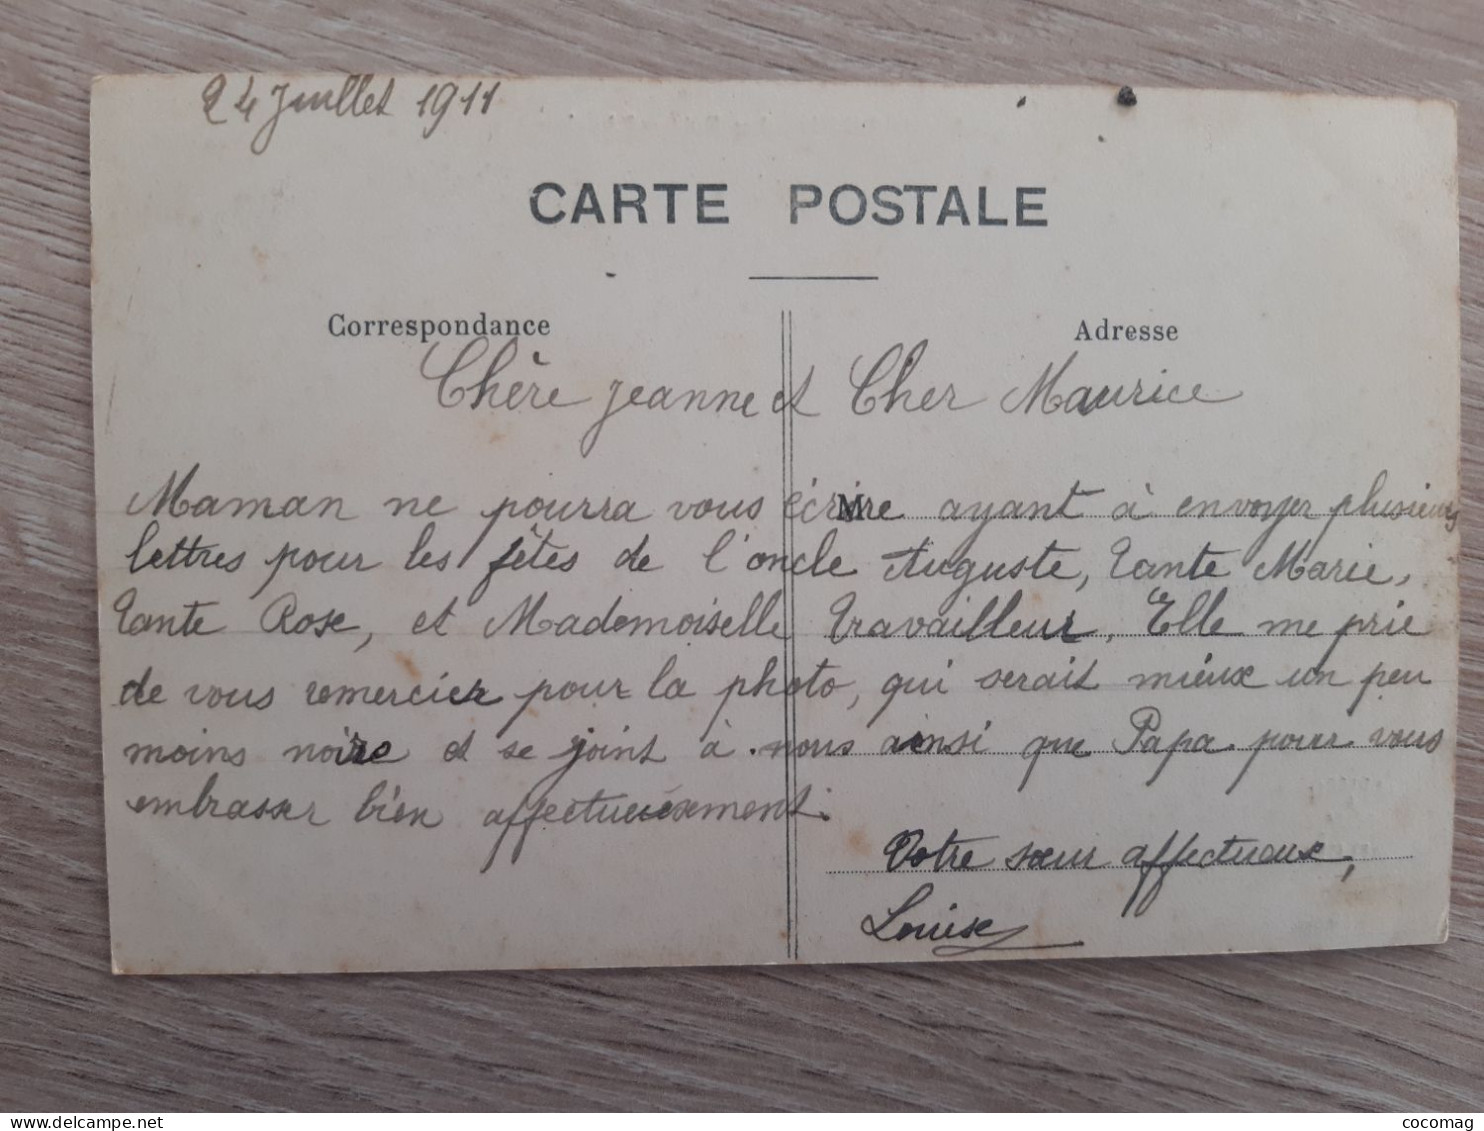 24 Juillet 1911
CARTE POSTALE
Correspondance
Adresse
Chère Jeanne et Cher Maurice
Maman ne pourra vous écrire ayant à envoyer plusieurs
M
lettres pour les fêtes de l'oncle Auguste, Tante Marie,
Tante Rose, et Mademoiselle Travailleur. Elle me prie
de vous remercier pour la photo, qui serait mieux un peu
moins noire et se joint à nous ainsi que Papa pour vous
embrasser bien affectueusement.
Votre sœur affectueuse,
Louise
cocomag